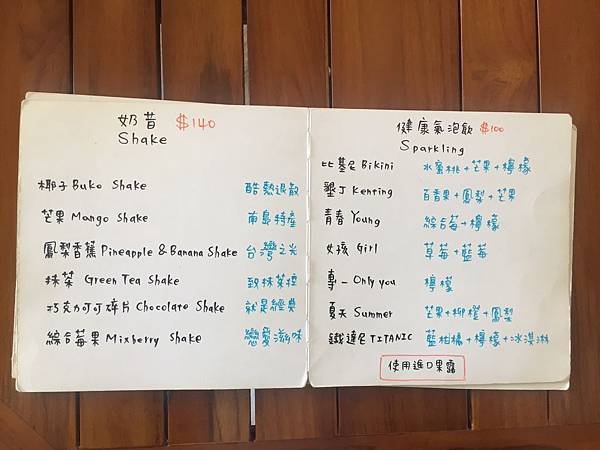 奶昔 $140
Shake
椰子 Buko Shake 酷熱退散
芒果 Mango Shake 南島特產
鳳梨香蕉 Pineapple & Banana Shake 台灣之光
抹茶 Green Tea Shake 致抹茶控
巧克力可可碎片 Chocolate Shake 就是經典
綜合莓果 Mixberry Shake 戀愛滋味
健康氣泡飲 $100
Sparkling
比基尼 Bikini 水蜜桃+芒果+檸檬
墾丁 Kenting 百香果+鳳梨+芒果
青春 Young 綜合莓+檸檬
女孩 Girl 草莓+藍莓
專一 Only you 檸檬
夏天 Summer 芒果+柳橙+鳳梨
鐵達尼 TITANIC 藍柑橘+檸檬+冰淇淋
使用進口果露